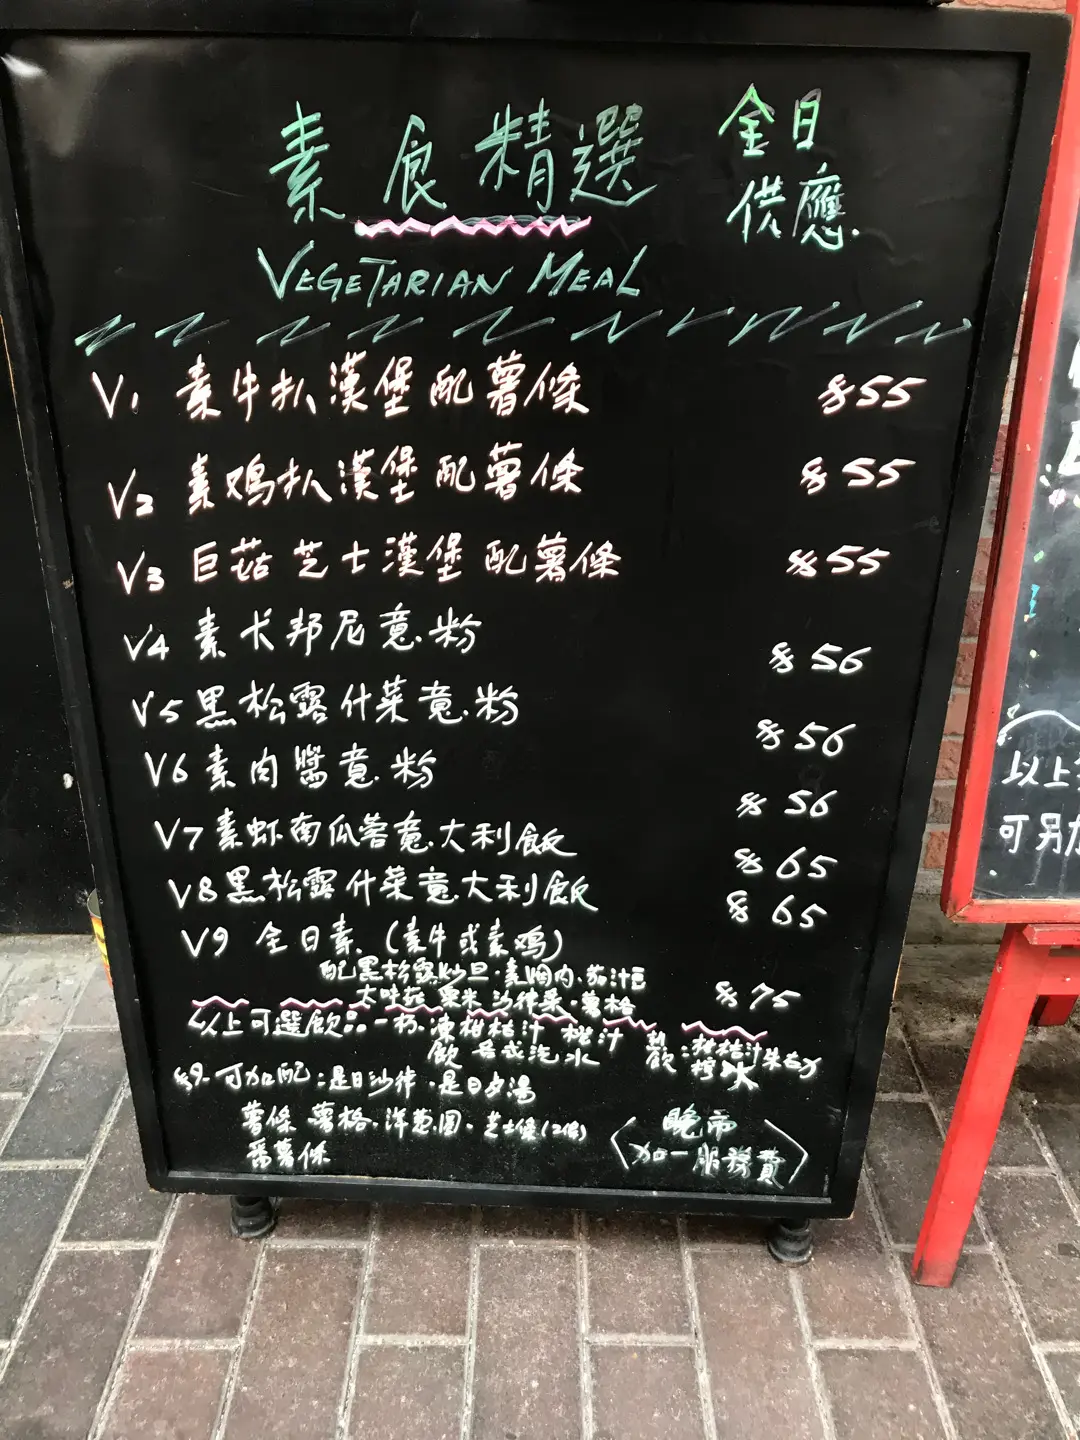 素食精選
全日
供應.
VEGETARIAN MEAL
V1 素牛扒漢堡配薯條 $55
V2 素鸡扒漢堡配薯條 $55
V3 巨菇芝士漢堡配薯條 $55
V4 素卡邦尼意粉 $56
V5 黑松露什菜意粉 $56
V6 素肉醬意粉 $56
V7 素虾南瓜蓉意大利飯 $65
V8 黑松露什菜意大利飯 $65
V9 全日素.(素牛或素鸡)
配黑松露炒旦.素胸肉.茄汁豆
粟米沙律菜.薯格 $75
以上可選飲品一杯.凍柑桔汁 橙汁 熱
飲 或汽水 飲:柑桔汁
$9.可加配:是日沙律.是日夕湯
薯條 薯格.洋葱圈.芝士堡(2件)
番薯條
晚市
加一服務費
以上
可另加